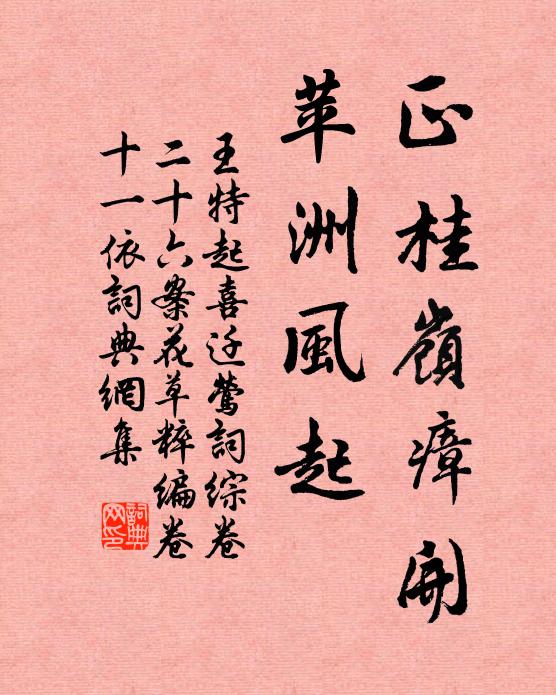 正桂嶺瘴開
苹洲風起
王特起喜迁鶯詞综卷
二十六案花草粹编卷
十一依詞典網集
詞典
网印